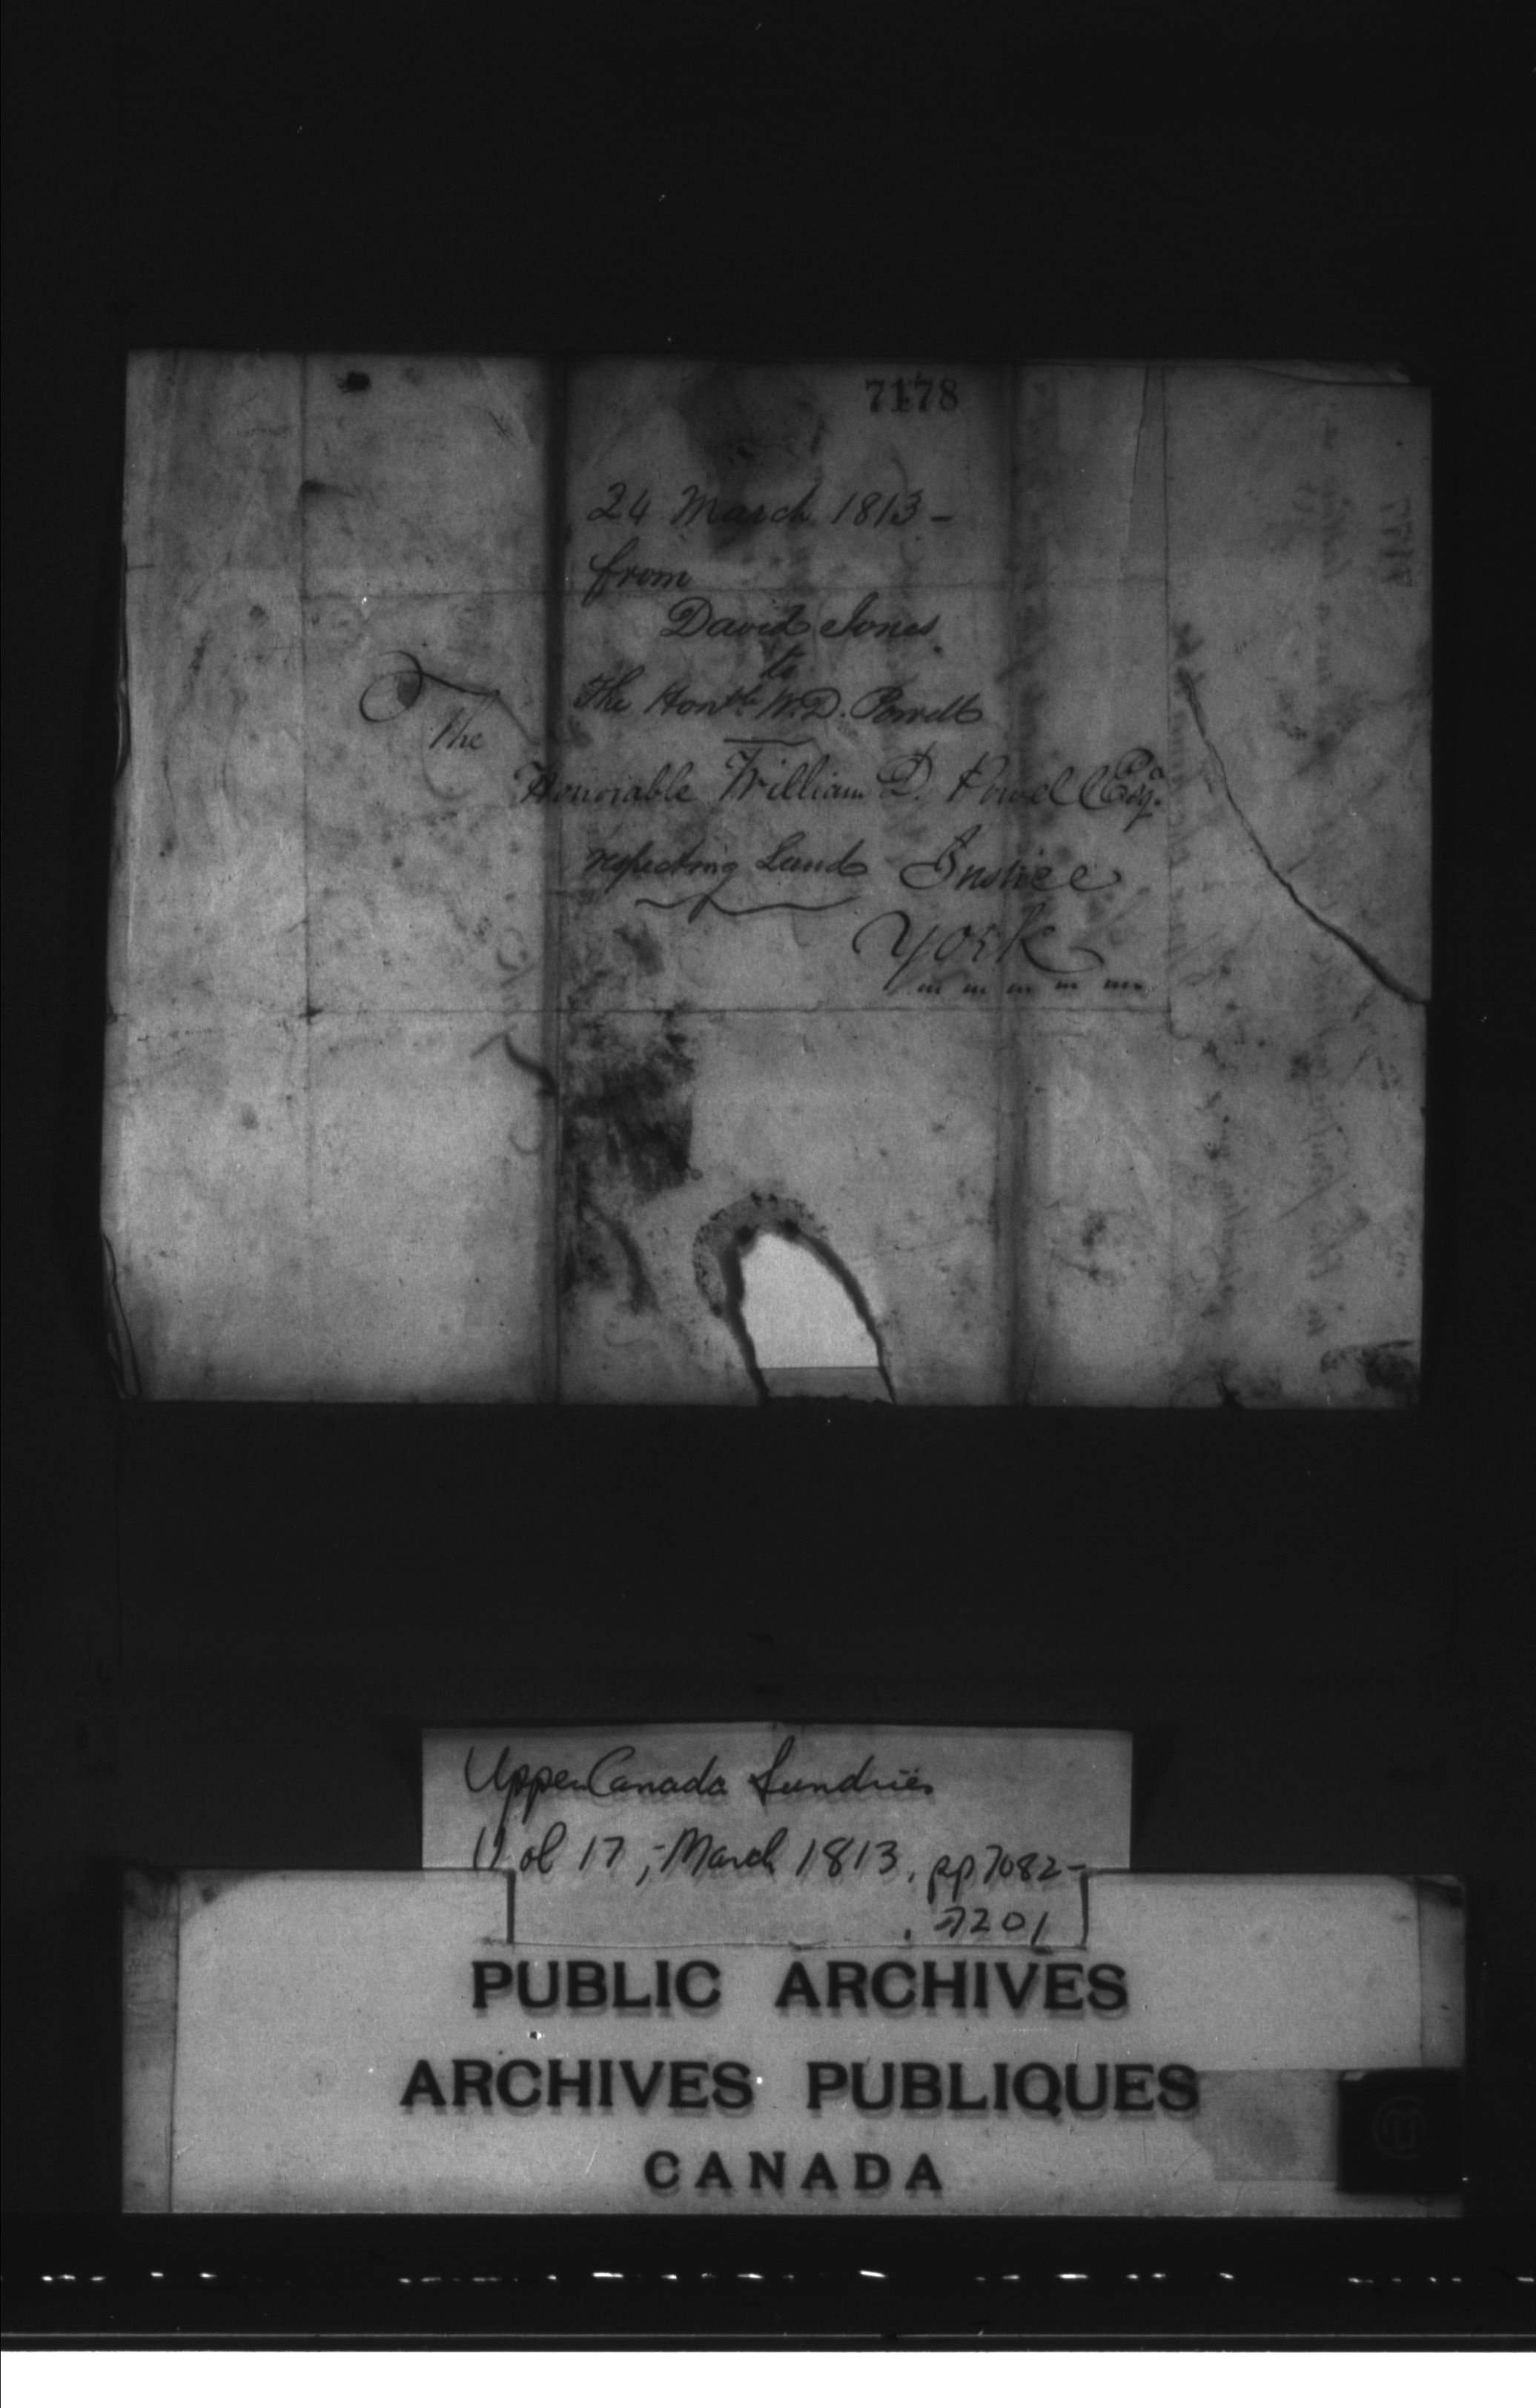 7178
24 March 1813 -
from
David Jones
to
The Honble W. D. Powell
The
Honorable William D. Powell Esqr
respecting Land
Justice
York
Upper Canada Sundries
Vol 17, - March 1813. pp 7082-
7201
PUBLIC ARCHIVES
ARCHIVES PUBLIQUES
CANADA